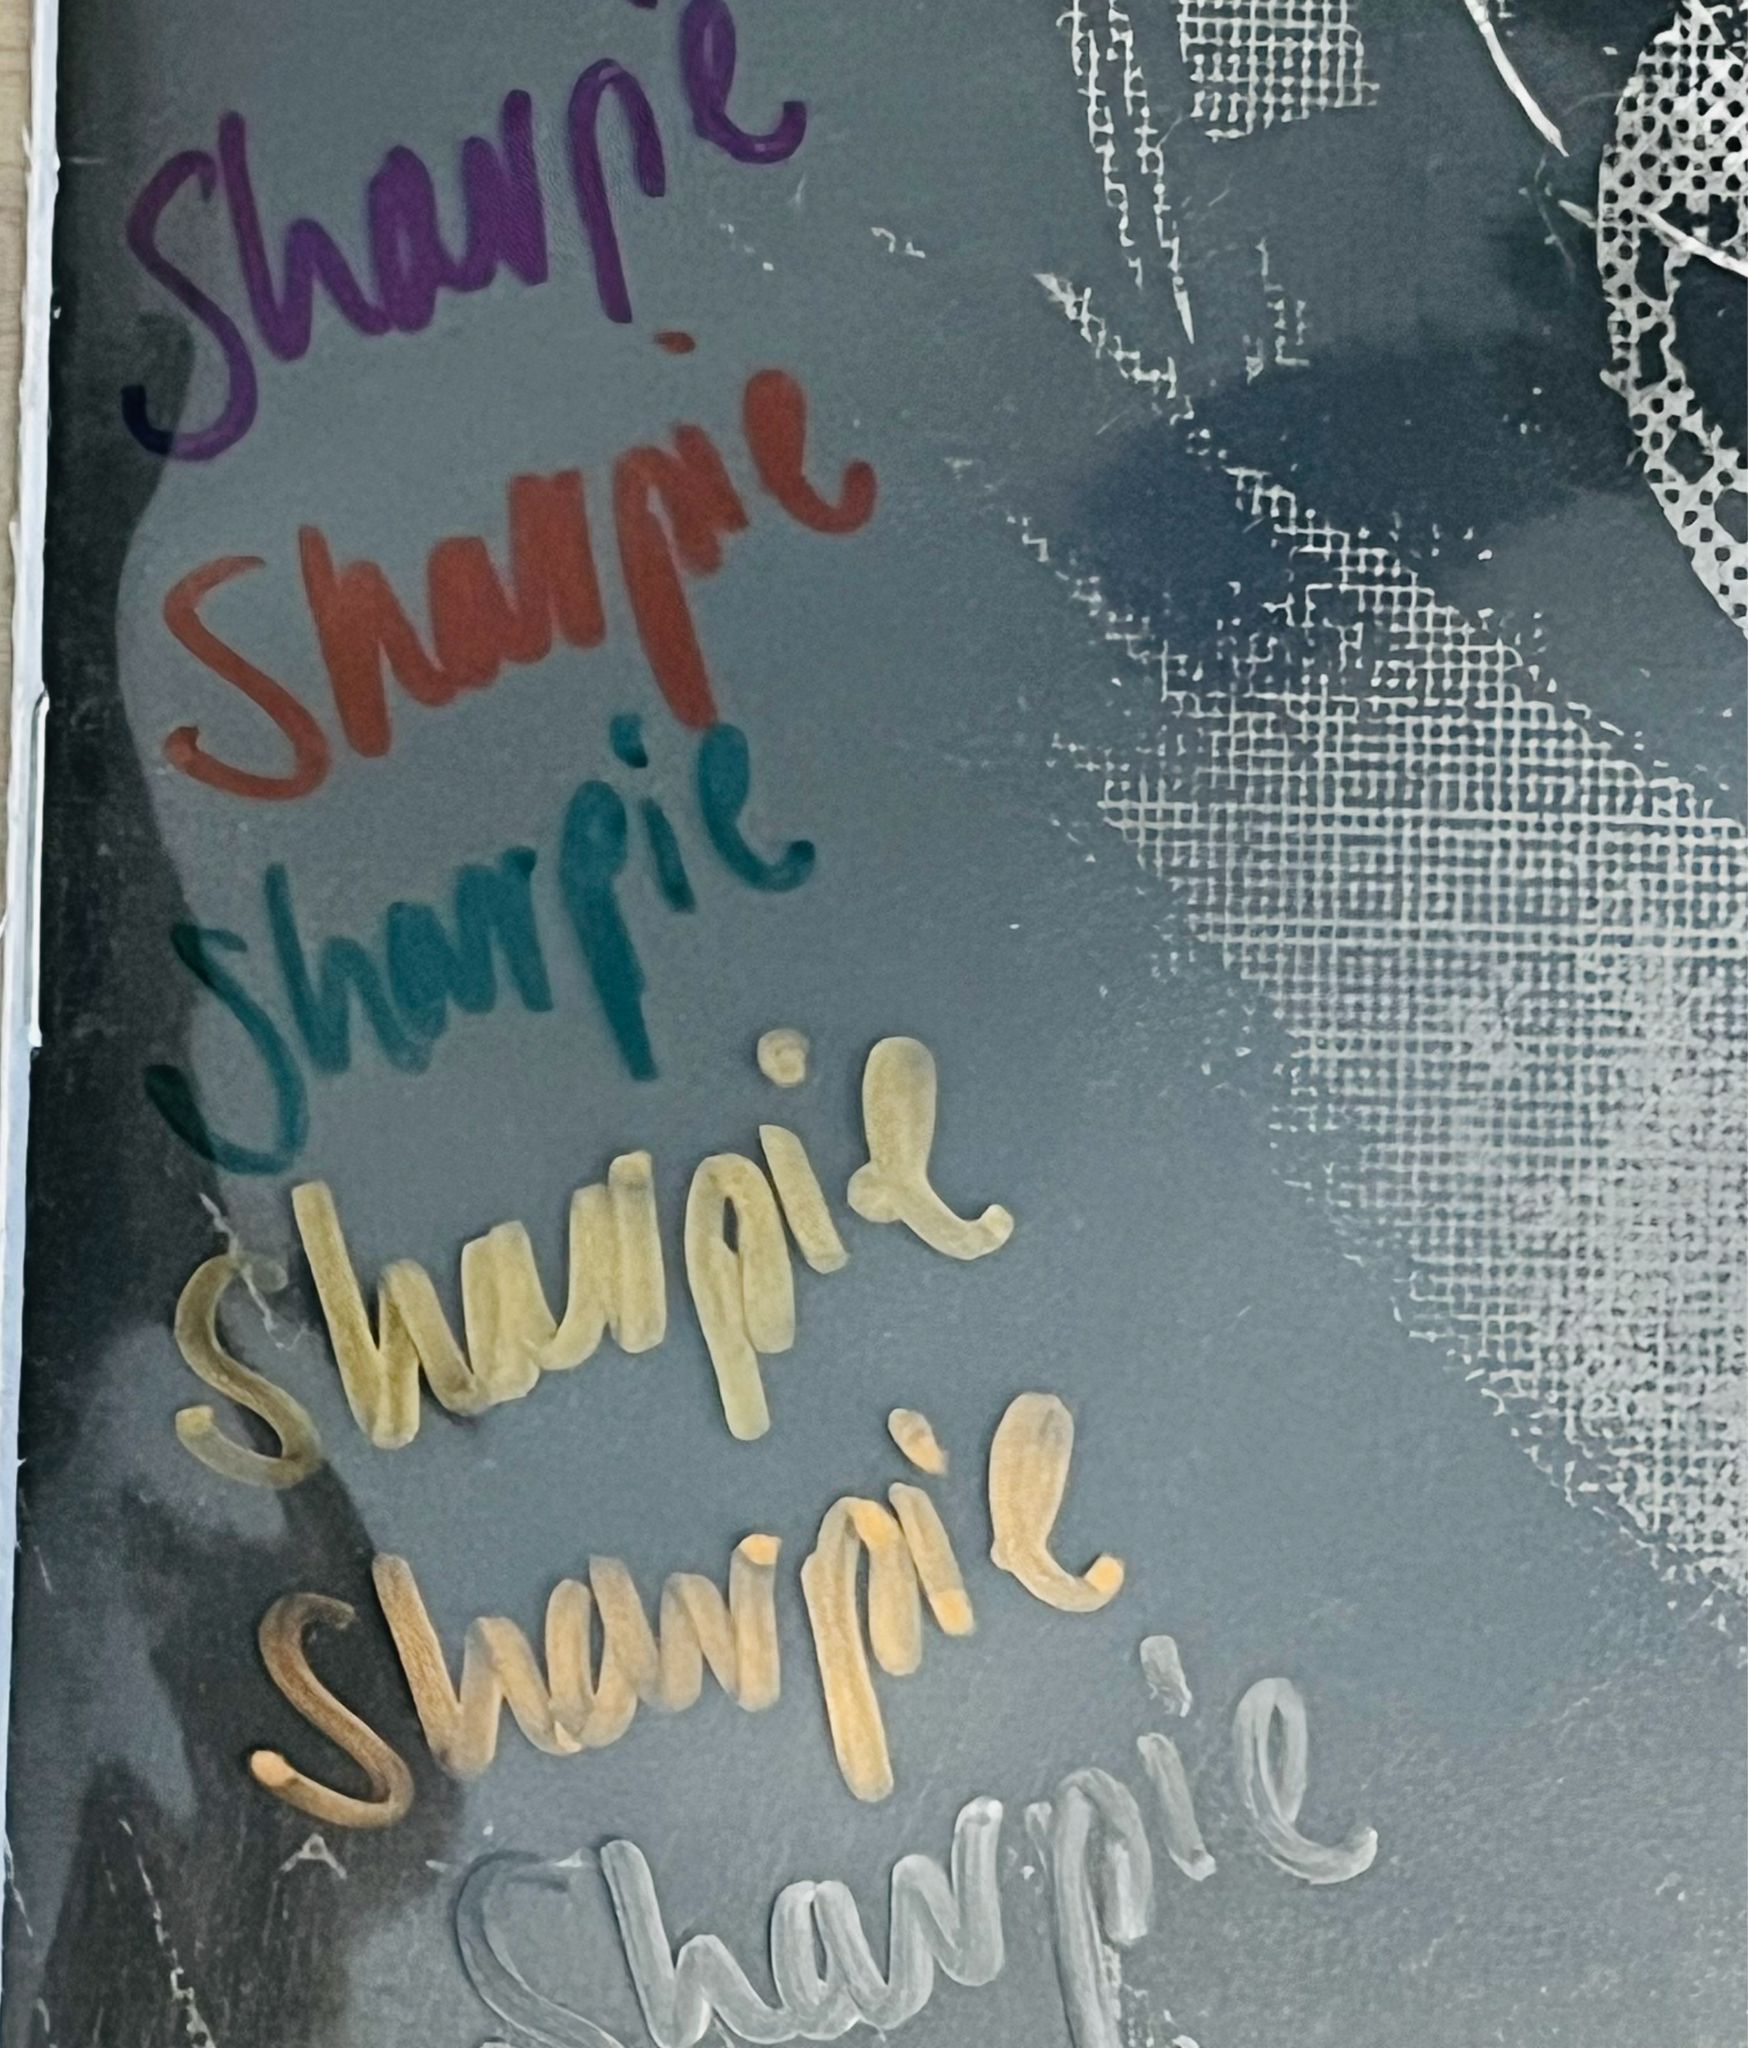 Sharpie
Sharpie
Sharpie
Sharpie
Sharpie
Sharpie